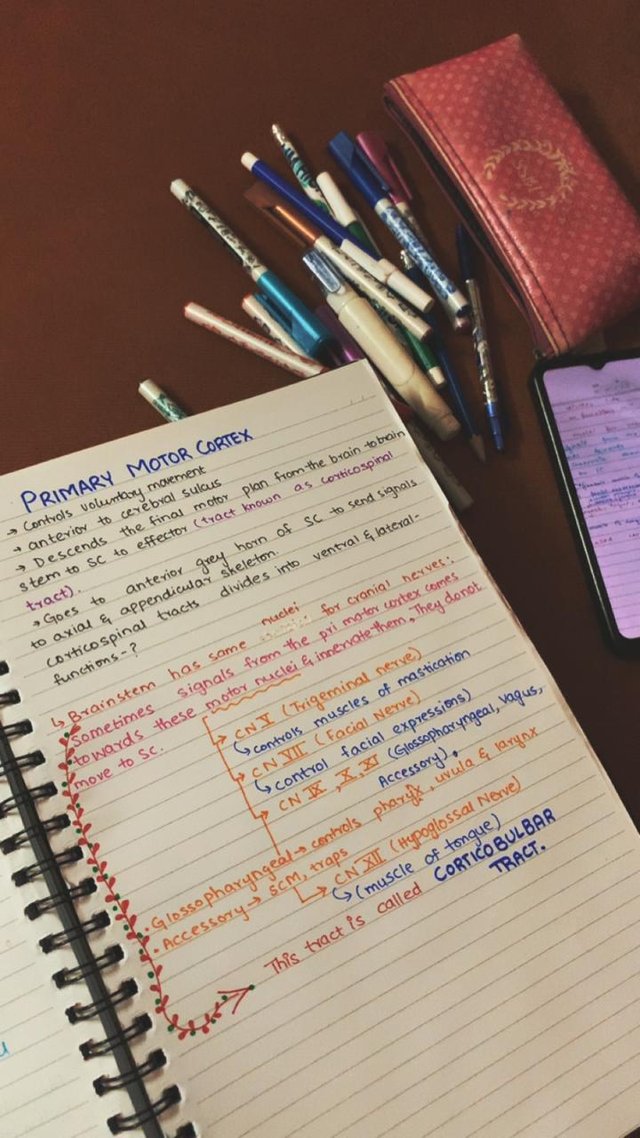 PRIMARY MOTOR CORTEX
→ Controls voluntary movement
→ anterior to cerebral sulcus
→ Descends the final motor plan from the brain to brain
stem to SC to effector (tract known as corticospinal
tract).
→ Goes to anterior grey horn of SC to send signals
to axial & appendicular skeleton.
corticospinal tracts divides into ventral & lateral-
functions-?
↳ Brainstem has same nuclei for cranial nerves:
Sometimes signals from the pri motor cortex comes
towards these motor nuclei & innervate them. They do not
move to SC.
→ CN V (Trigeminal nerve)
↳ controls muscles of mastication
→ CN VII (Facial Nerve)
↳ control facial expressions)
→ CN IX, X, XI (Glossopharyngeal, vagus,
Accessory).
• Glossopharyngeal → controls pharynx, uvula & larynx
• Accessory → SCM, traps
→ CN XII (Hypoglossal Nerve)
↳ (muscle of tongue)
This tract is called CORTICOBULBAR
TRACT.